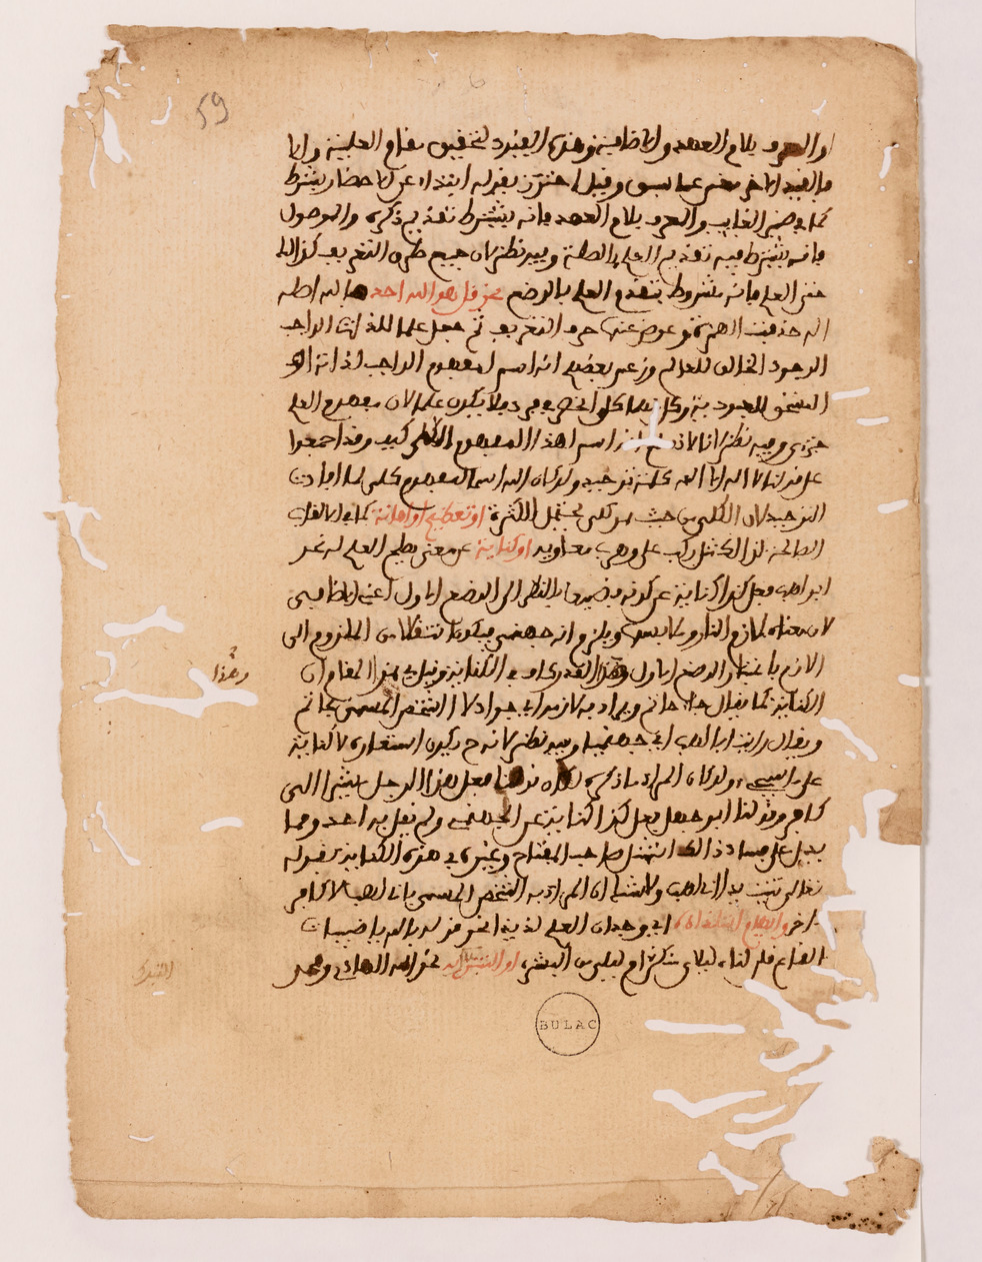 59
او المعرف بلام العهد والاضافية وهذه القيود لتحقيق مقام العلمية والا
فالقيد الاخير مغن عما سبق وقيل احترز بقوله ابتداء عن الاحضار بشرط
كما في ضمير الغايب والمعرف بلام العهد فانه يشترط تقديم ذكره والموصول
فانه يشترط فيه تقديم العلم بالصلة وفيه نظر لان جميع طرق التعريف كذلك
حتى العلم فانه مشروط بتقدم العلم بالوضع نحو قل هو الله احد فالله اصله
اله حذفت الهمزة وعوض عنها حرف التعريف ثم جعل علما للذات الواجب
الوجود الخالق للعالم وزعم بعضهم انه اسم لمفهوم الواجب لذاته او
المستحق للعبودية وكل منهما كلي انحصر في فرد فلا يكون علما لان مفهوم العلم
جزءي وفيه نظر لانا لا نسلم انه اسم لهذا المفهوم الكلي كيف وقد اجمعوا
على قولنا لا اله الا الله كلمة توحيد ولو كان الله اسما لمفهوم كلي لما افادت
التوحيد لان الكلي من حيث هو كلي يحتمل الكثرة او تعظيم او اهانة كما في الالقاب
الصالحة لذلك مثل ركب علي وهرب معاوية او كناية عن معنى يصلح العلم له نحو
ابو لهب فعل كذا كناية عن كونه جهنميا بالنظر الى الوضع الاول اعني الاضافي
لان معناه ملازم النار وملابسها ويلزم انه جهنمي فيكون انتقالا من الملزوم الى
اللازم باعتبار الوضع الاول وهذا القدر كاف في الكناية وقيل في هذا المقام ان
الكناية كما يقال جاء حاتم ويراد به لازمه اي جواد لا الشخص المسمى بحاتم
ويقال رايت ابا لهب اي جهنميا وفيه نظر لانه ح يكون استعارة لا كناية
على ما سيجيء ولو كان المراد ما ذكره لكان قولنا فعل هذا الرجل مشيرا الى
كافر وقولنا ابو جهل فعل كذا كناية عن الجهنمي ولم يقل به احد ومما
يدل على فساد ذلك انه مثل صاحب المفتاح وغيره في هذه الكناية بقوله
تعالى تبت يدا ابي لهب ولا شك ان المراد به الشخص المسمى بابي لهب لا كافر
اخر وايهام استلذاذه اي وجدان العلم لذيذا نحو قوله بالله يا ظبيات
القاع قلن لنا ليلاي منكن ام ليلى من البشر او التبرك به نحو الله الهادي ومحمد
وهذا
التبرك
BULAC